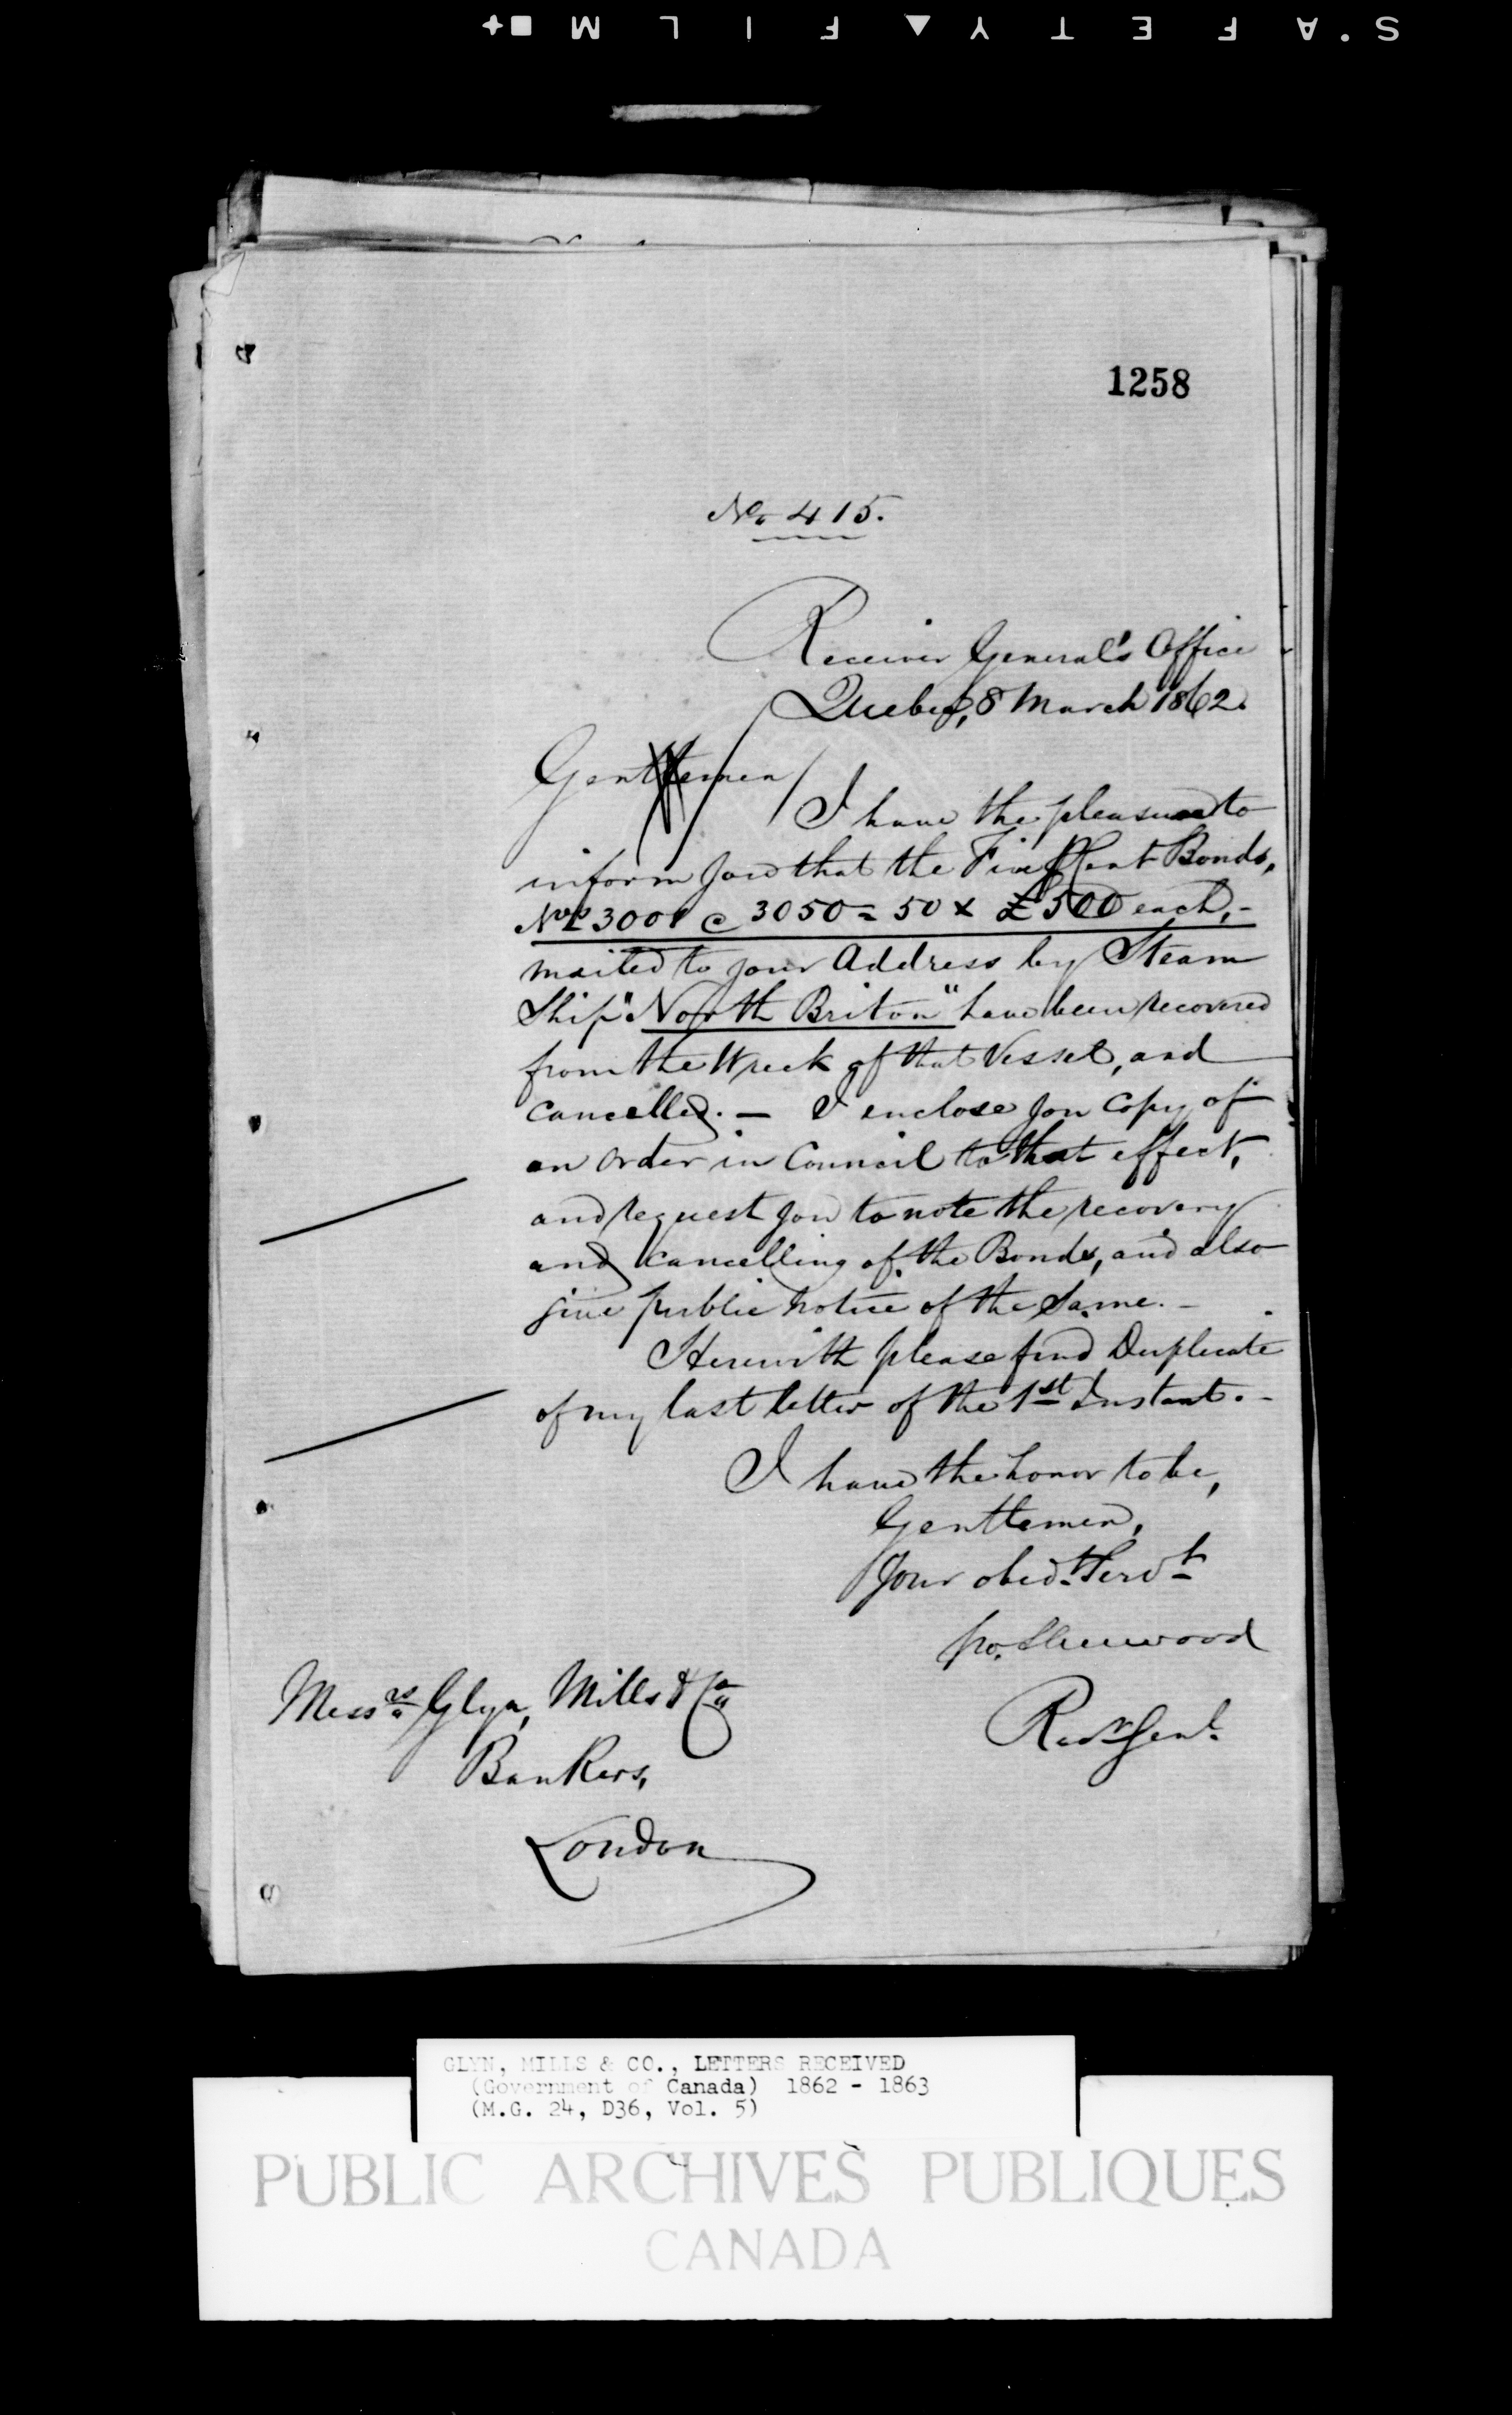 S.AFETY▲FILM
1258
No. 415.
Receiver General's Office
Quebec, 8 March 1862.
Gentlemen
I have the pleasure to
inform you that the Five P Cent Bonds,
Nos 3001 @ 3050 = 50 x £500 each,-
mailed to your Address by Steam
Ship "North Briton" have been recovered
from the Wreck of that Vessel, and
cancelled. — I enclose you Copy of
an Order in Council to that effect,
and request you to note the recovery
and cancelling of the Bonds, and also
give public notice of the Same. -
Herewith please find Duplicate
of my last letter of the 1st Instant. -
I have the honor to be,
Gentlemen,
Your obedt Servt
Sherwood
Recr Genl.
Messrs Glyn, Mills & Co
Bankers,
London
GLYN, MILLS & CO., LETTERS RECEIVED
(Government of Canada) 1862 - 1863
(M.G. 24, D36, Vol. 5)
PUBLIC ARCHIVES PUBLIQUES
CANADA